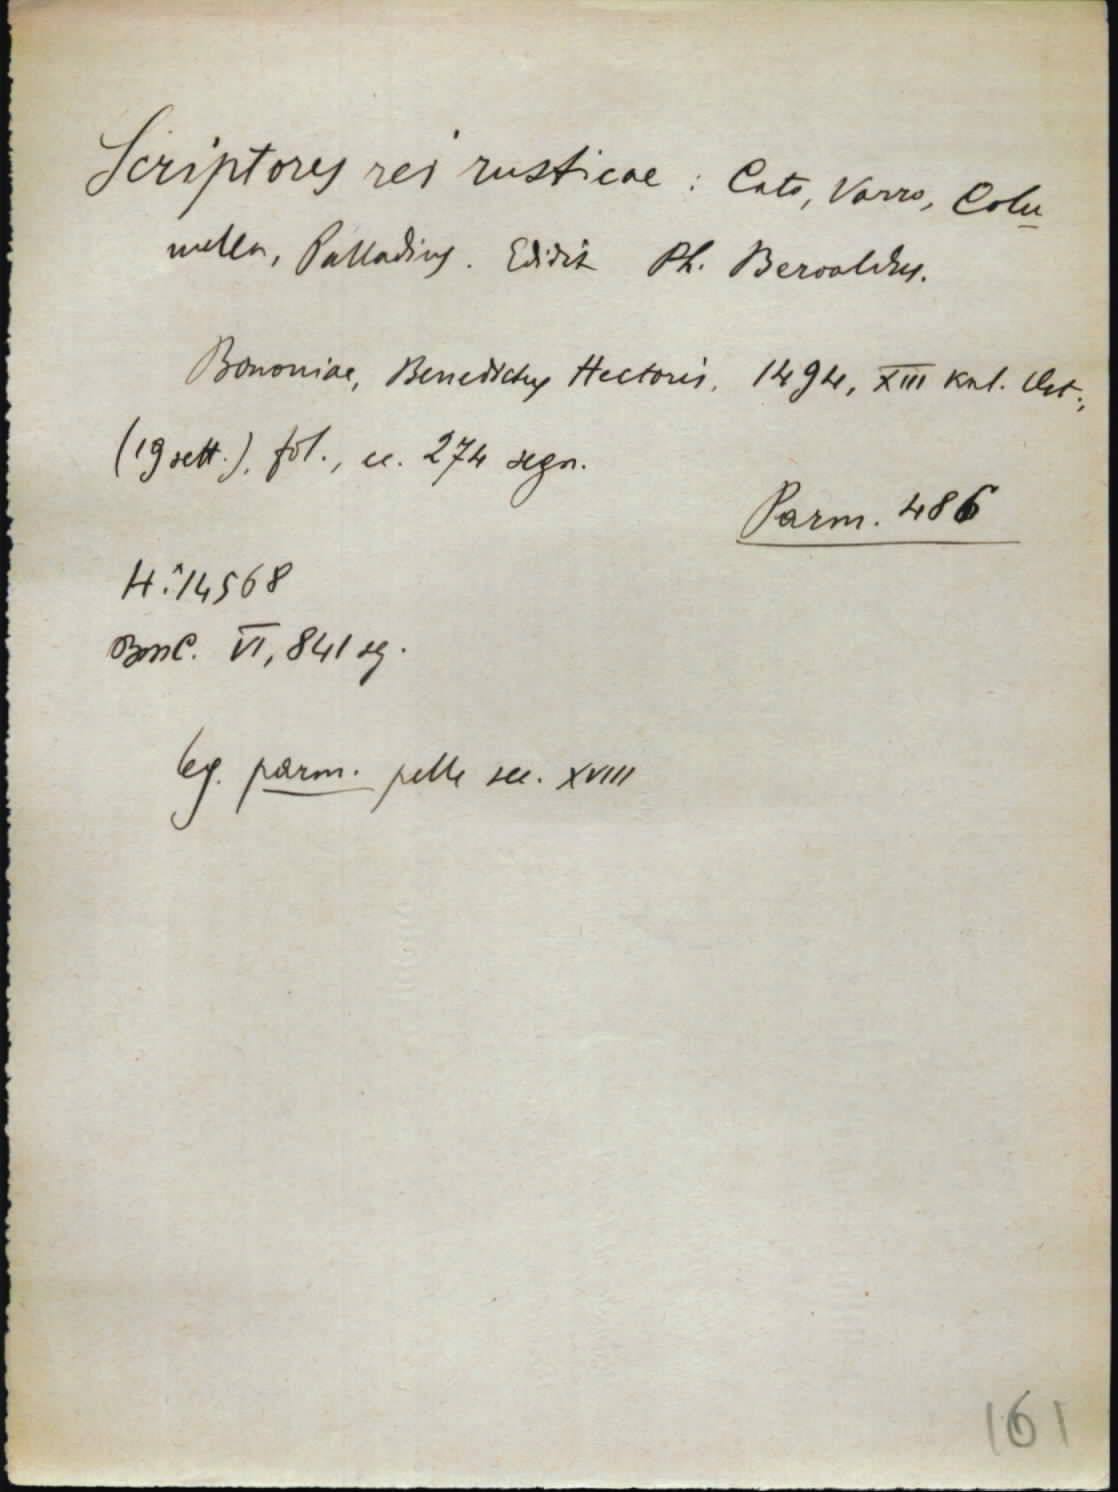 Scriptores rei rusticae : Cato, Varro, Colu
mella, Palladius. Edidit Ph. Beroaldus.
Bononiae, Benedictus Hectoris, 1494, XIII kal. Oct.,
(19 sett.), fol., cc. 274 segn.
Parm. 486
H.* 14568
BMC. VI, 841 sg.
leg. parm. pelle sec. XVIII
161